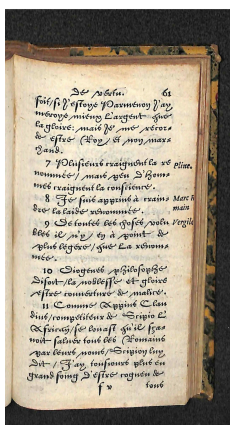 De vertu. 61
soit/si i'estoye Parmenon i'ay
meroye mieux L'argent que
la gloire, mais ie me recor-
de estre Roy, et non mar-
chand.
7 Plusieurs craignent la re Pline.
nommée, mais peu d'hom-
mes craignent la conscience.
8 Je suis apprins a crain- Marc
dre la laide renommée. main
9 De toutes les choses, volu Vergile
bles il n'y en a point de
plus legere, que la renom-
mée.
10 Diogenes philosophe
disoit, la noblesse et gloire
estre couverture de malice.
11 Comme Appius Clau
dius, competiteur de Scipio L'
Africain, se louast qu'il sça-
voit saluer tous les Romains
par leurs noms, Scipion luy
dit, J'ay tousiours plus en
grand soing d'estre cogneu de
f v tous